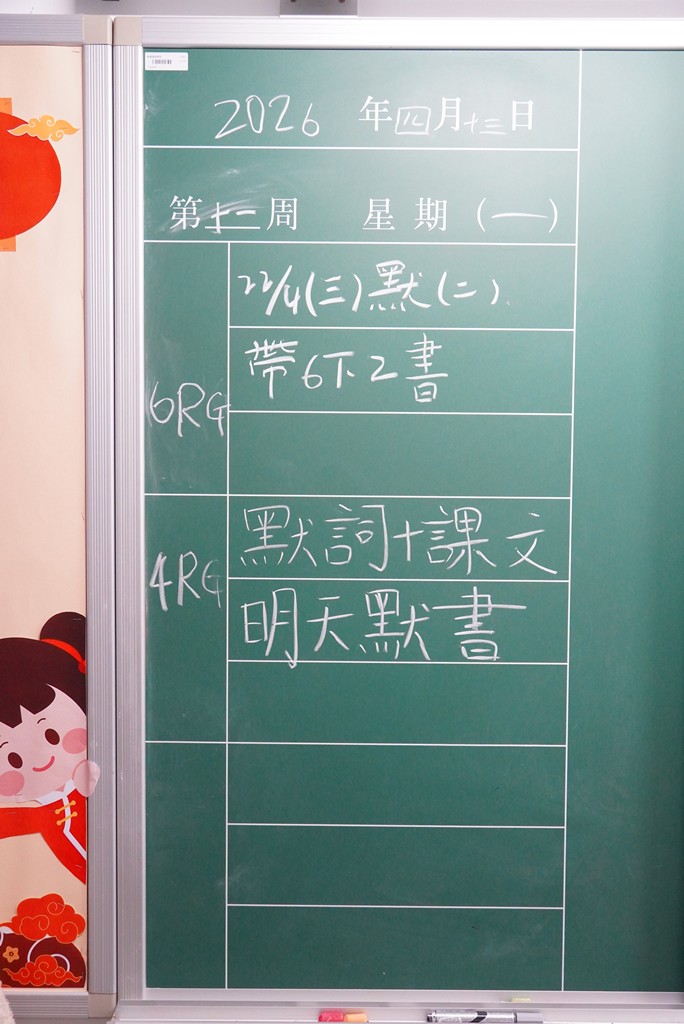 2026 年四月十三日
第十一周 星期(一)
6RG
22/4(三)默(二).
帶6下2書
4RG
默詞+課文
明天默書